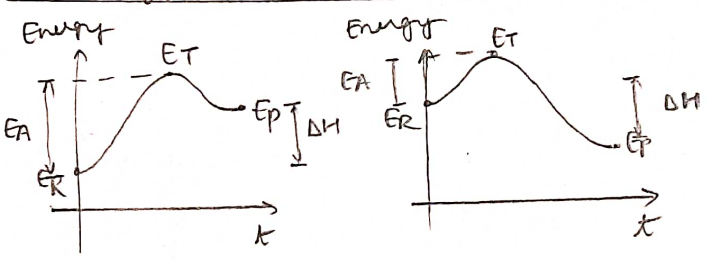 Energy
ET
EA
EP
ΔH
ER
t
Energy
ET
EA
ER
ΔH
EP
t